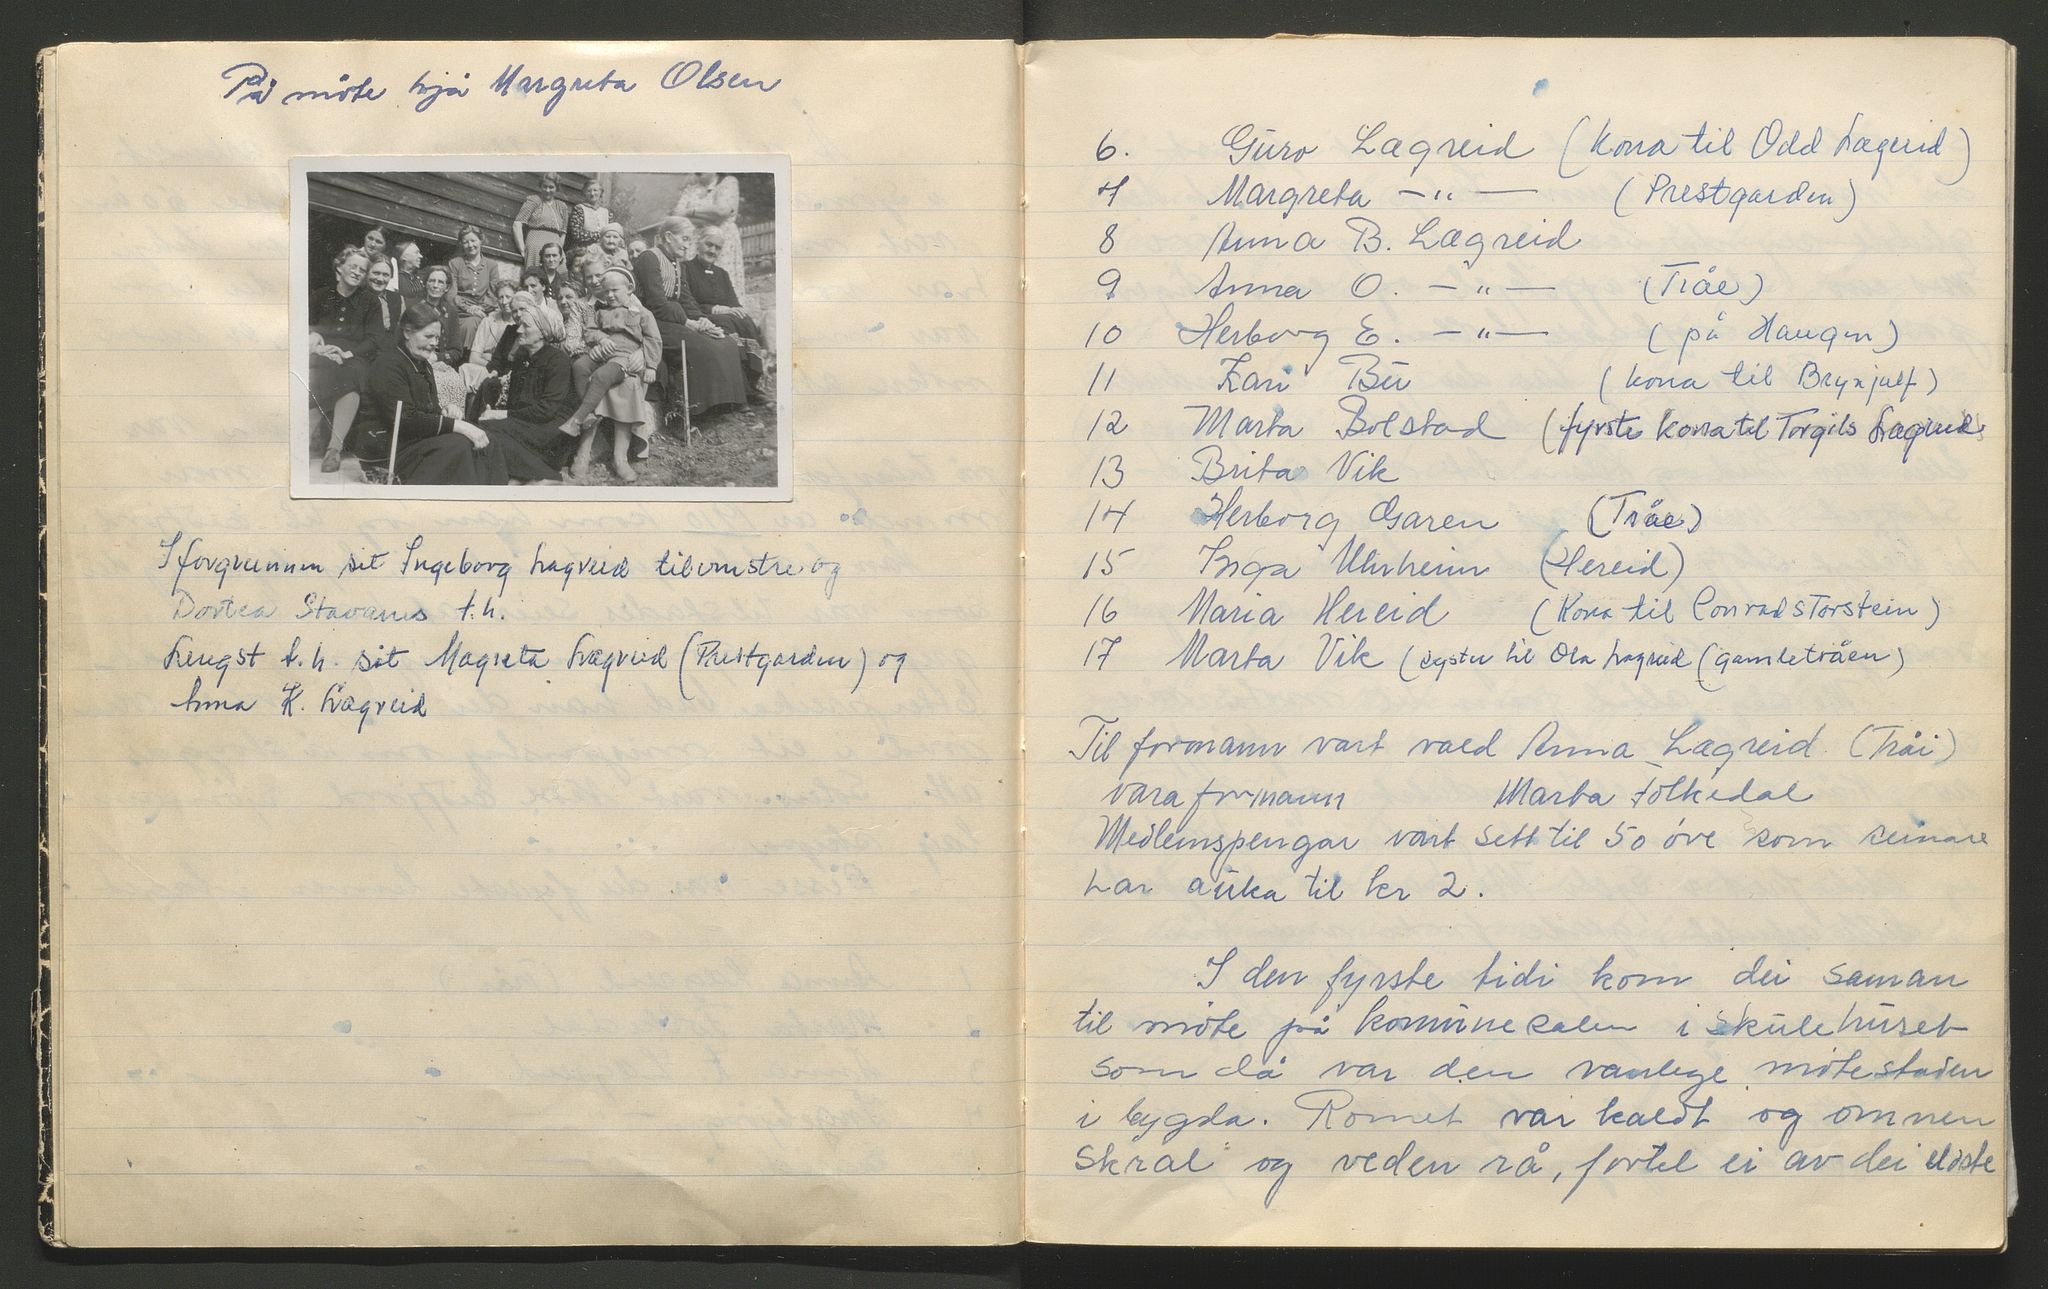 På møte hjå Margreta Olsen
I forgrunnen sit Ingeborg Lægreid tilvinstre og
Dortea Stavanes t.h.
Lengst t.h. sit Magreta Lægreid (Prestgarden) og
Anna K. Lægreid
6. Guro Lægreid (Kona til Odd Lægreid)
7 Margreta — " — (Prestgarden)
8 Anna B. Lægreid
9 Anna O. — " — (Tråe)
10 Herborg E. — " — (på Haugen)
11 Kari Bu (kona til Brynjulf)
12 Marta Bolstad (fyrste kona til Torgils Lægreid)
13 Brita Vik
14 Herborg Garen (Tråe)
15 Inga Uhrheim (Hereid)
16 Maria Hereid (Kona til Conrad Storstein)
17 Marta Vik (syster til Ola Lægreid (gamletråen)
Til formann vart vald Anna Lægreid (Tråi)
varaformann Marta Folkedal
Medlemspengar vart sett til 50 øre som seinare
har auka til kr 2.
I den fyrste tidi kom dei saman
til møte på komunesalen i skulehuset
som då var den vanlege møtestaden
i bygda. Romet var kaldt og omnen
skral og veden rå, fortel ei av dei eldste